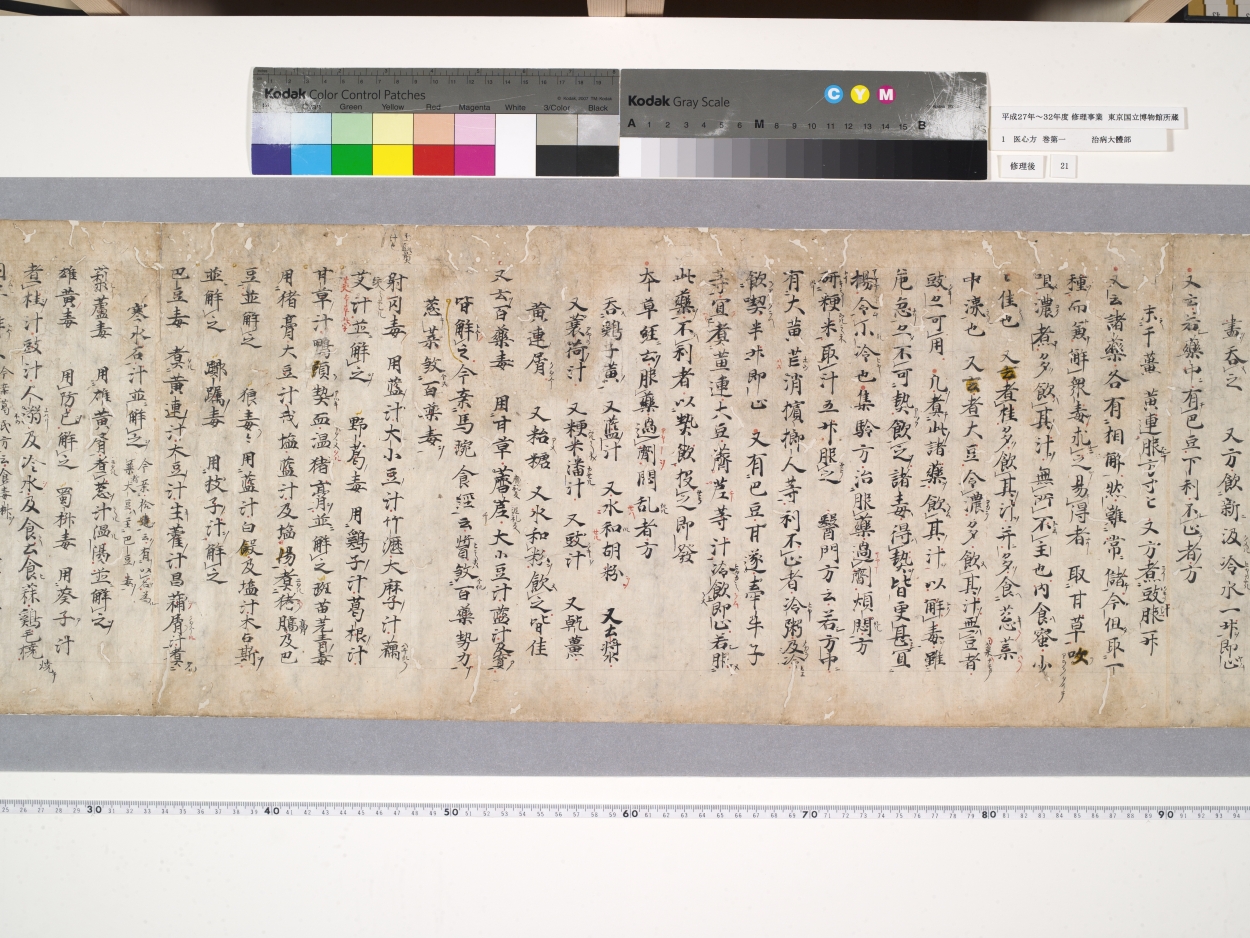 Kodak Color Control Patches
Cyan Green Yellow Red Magenta White 3/Color Black
Kodak Gray Scale
C Y M
A 1 2 3 4 5 6 M 8 9 10 11 12 13 14 15 B
平成27年～32年度 修理事業 東京国立博物館所蔵
1 医心方 巻第一 治病大體部
修理後 21
書呑之 又方飲新汲冷水一升即止
又云若藥中有巴豆下利不止者方
末干薑 黄連服方寸匕 又方煮豉服一升
又云諸藥各有相解然難常儲今但取一
種而兼解衆毒求之易得者 取甘草
濃煮多飲其汁無所不主也内食蜜少
佳也 又云煮桂多飲其汁并多食葱菜
中漾也 又云煮大豆令濃多飲其汁無豆者
豉亦可用 凡煮此諸藥飲其汁以解毒雖
危急亦不可熱飲之諸毒得熱皆更甚宜
揚令小冷也 集驗方治服藥過劑煩悶方
研粳米取汁五升服之 醫門方云若方中
有大黄芒消檳榔人等利不止者冷粥及冷
飲喫半升即止 又有巴豆甘遂牽牛子
等宜煮黄連大豆薺苨等汁冷飲即止若服
此藥不利者以熱飲投之即發
本草經云服藥過劑悶乱者方
呑鶏子黄 又藍汁 又水和胡粉 又云漿
又蘘荷汁 又粳米潘汁 又豉汁 又乾薑
黄連屑 又粘糖 又水和粉飲之皆佳
又云百藥毒 用甘草薺苨大小豆汁藍汁及實
皆解之今案馬琬食經云醤敏百藥勢力
葱菜敏百藥毒
射罔毒 用藍汁大小豆汁竹瀝大麻子汁藕
芰汁並解之 野葛毒 用鶏子汁葛根汁
甘草汁鴨頭熱血温猪膏並解之 斑苗芫青毒
用猪膏大豆汁戎塩藍汁及塩湯煮猪膓及巴
豆並解之 狼毒毒 用藍汁白斂及塩汁木占斯
並解之 躑躅毒 用枝子汁解之
巴豆毒 煮黄連汁大豆汁生藿汁昌蒲屑汁煮
寒水石汁並解之
蔾蘆毒 用雄黄屑煮葱汁温湯並解之
雄黄毒 用防己解之 蜀椒毒 用葵子汁
煮桂汁豉汁人溺及冷水及食云食蒜鶏毛燒
30 40 50 60 70 80 90